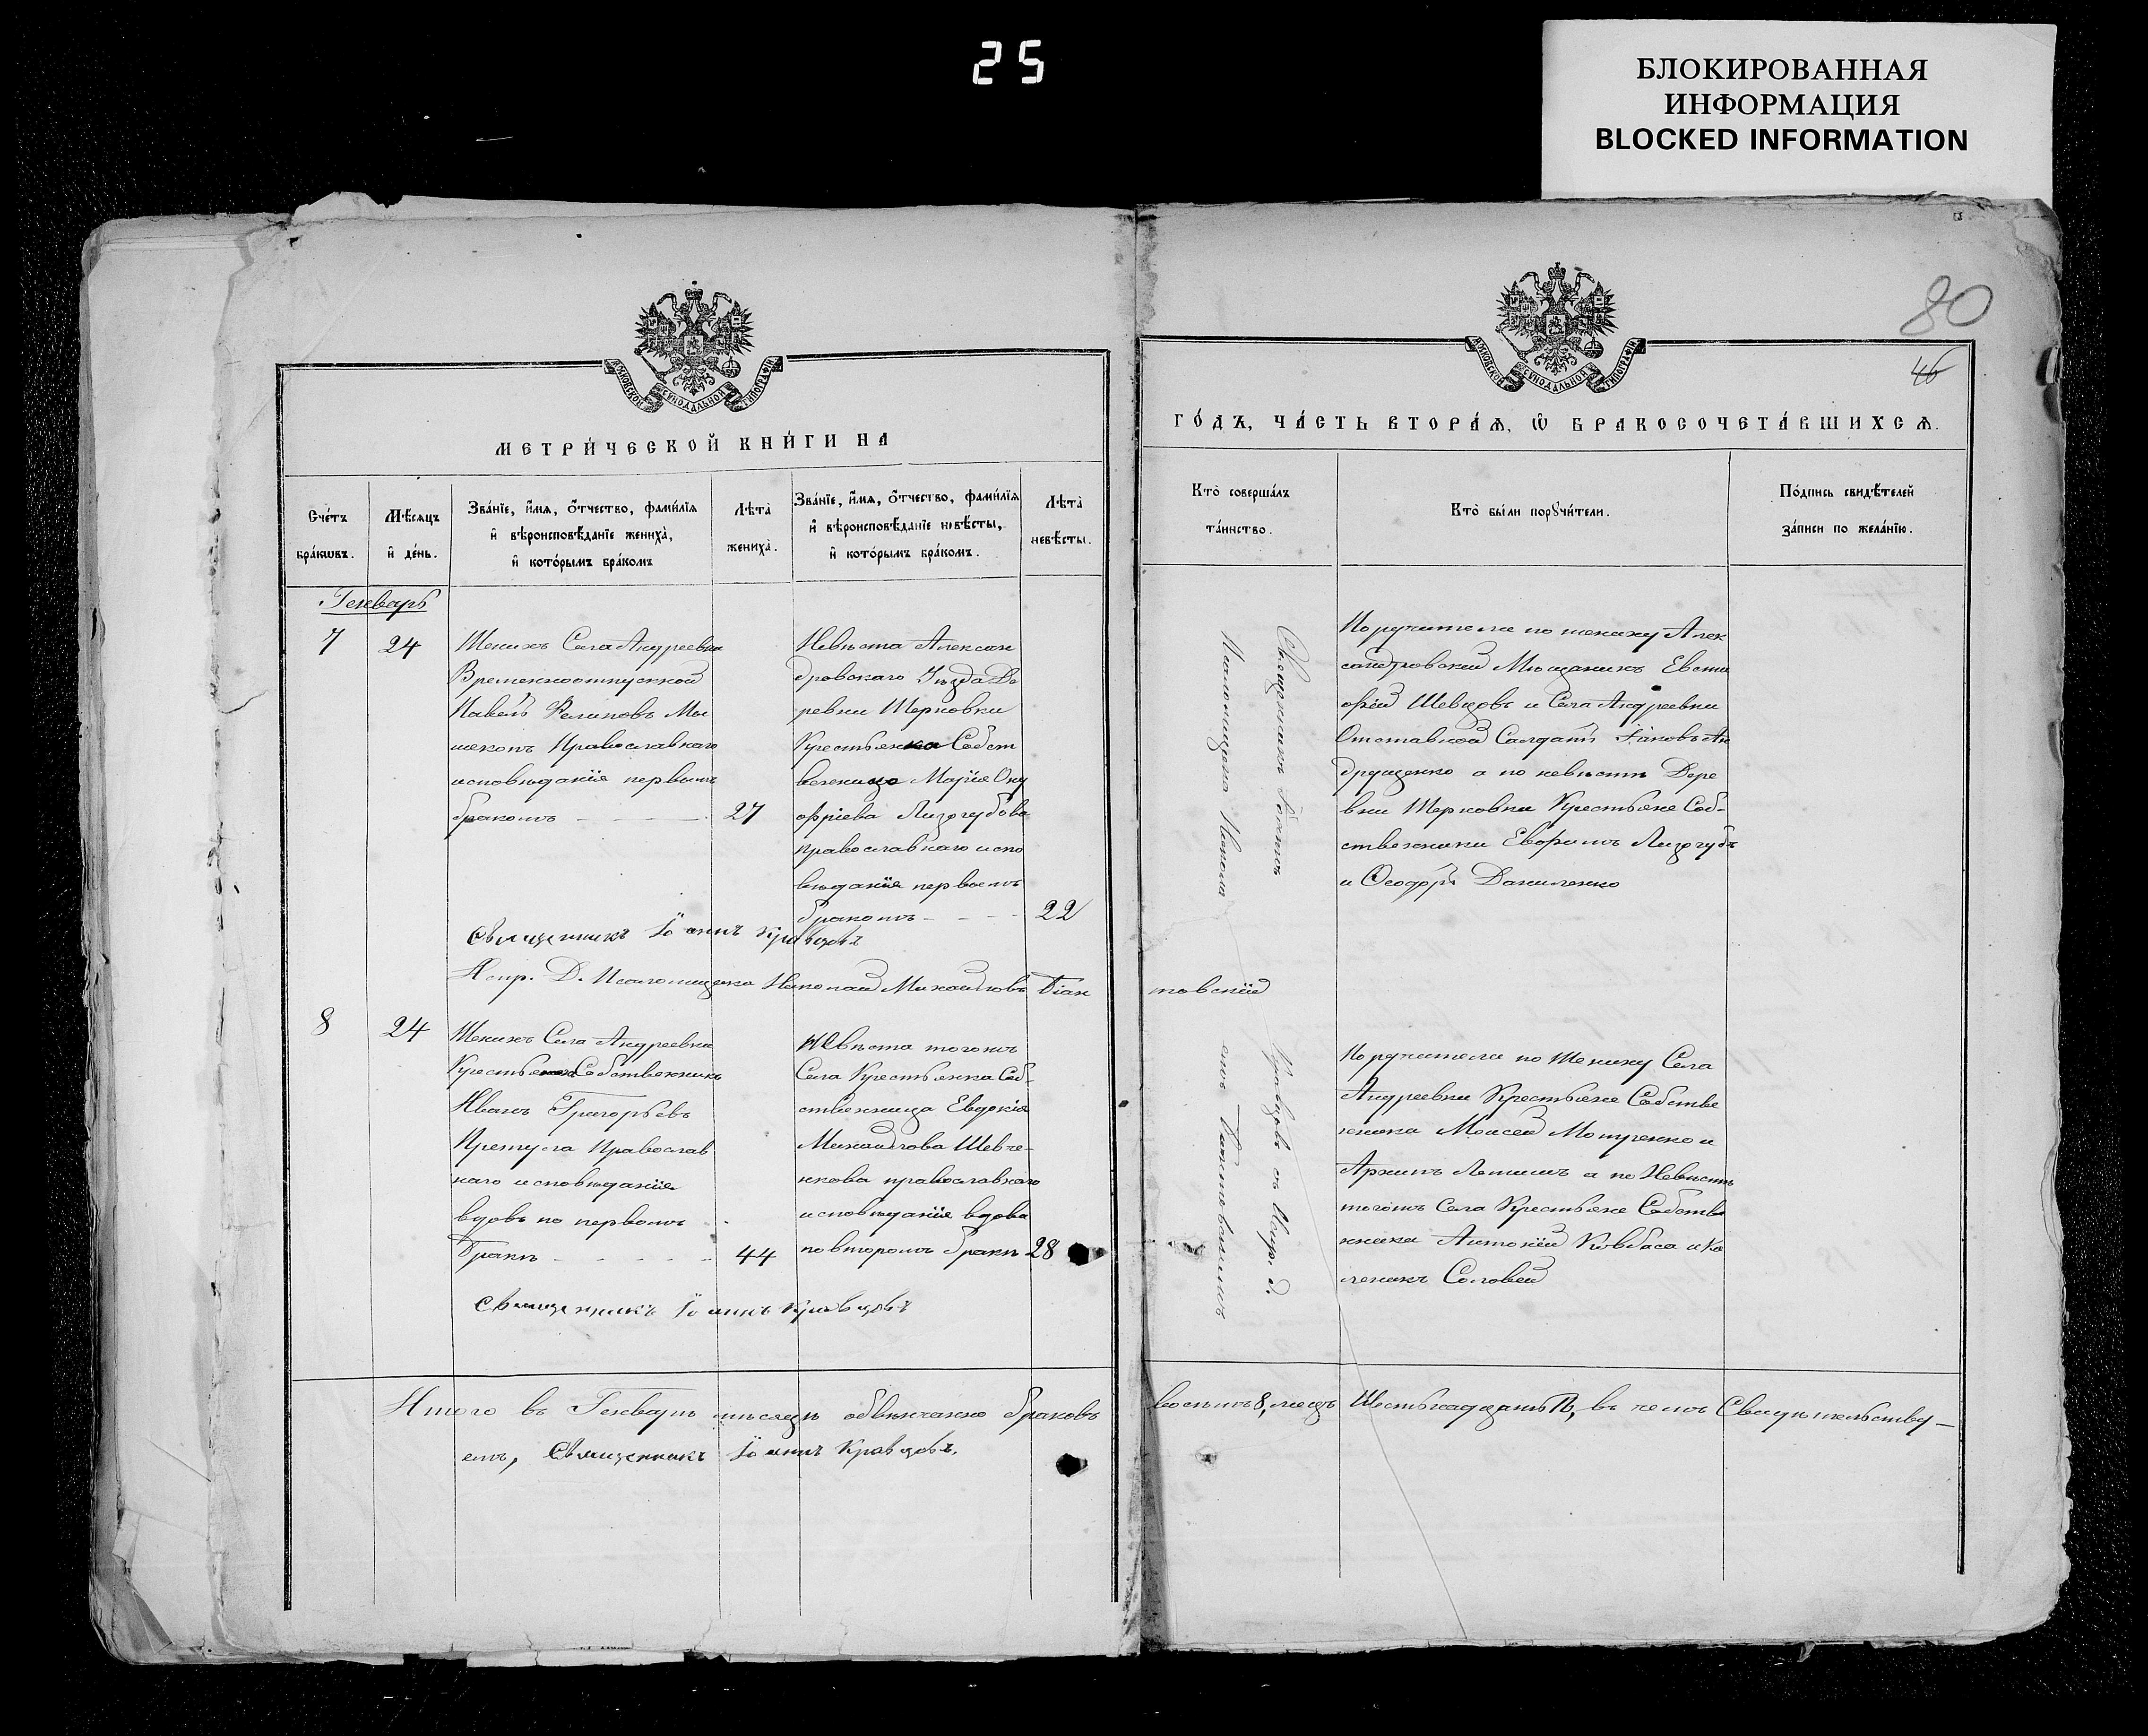 25
БЛОКИРОВАННАЯ
ИНФОРМАЦИЯ
BLOCKED INFORMATION
80
46
МОСКОВСКОЙ СѴНОДАЛЬНОЙ ТИПОГРАФІИ
МОСКОВСКОЙ СѴНОДАЛЬНОЙ ТИПОГРАФІИ
МЕТРИ́ЧЕСКОЙ КНИ́ГИ НА
ГО́ДЪ, ЧА́СТЬ ВТОРА́Ѧ, Ѿ БРАКОСОЧЕТА́ВШИХСѦ.
Сче́тъ
бра́кωвъ.
Мѣ́сѧцъ
и҆ де́нь.
Зва́нїе, и҆́мѧ, ѻ҆́тчество, фами́лїѧ
и҆ вѣроисповѣ́данїе жениха̀,
и҆ кото́рымъ бра́комъ
Лѣта̀
жениха̀.
Зва́нїе, и҆́мѧ, ѻ҆́тчество, фами́лїѧ
и҆ вѣроисповѣ́данїе невѣ́сты,
и҆ кото́рымъ бра́комъ.
Лѣта̀
невѣ́сты.
Кто̀ соверша́лъ
та́инство.
Кто̀ бы́ли порꙋчи́тели.
По́дпись свидѣ́телей
за́писи по жела́нїю.
Генварь
7
24
Женихъ Села Андреевки
Временноотпускной
Павелъ Филиповъ
Православнаго
исповѣданія первымъ
бракомъ
27
Невѣста Алексан
дровскаго Уѣзда Де
ревни Жерновки
Крестьянка Собст
венница Марія Ону
фріева Лизогубова
православнаго испо
вѣданія первымъ
бракомъ
22
Священникъ Іоаннъ
Псаломщика Никола
Поручители по жениху Алек
сандровский Мѣщанинъ Евсти
офѣй Шевцовъ и Села Андреевки
Отставной Салдатъ Іаковъ Ан
друщенко а по невѣсте Дере
вни Жерновки Крестьяне Соб-
ственники Евфимъ Лизогубъ
и Ѳеодоръ Даниленко
Священникъ Іоаннъ Кравцовъ
Испр. Д. Псаломщика Николай Михайловъ Біан
товскій
8
24
Женихъ Села Андреевки
Крестьянинъ Собственникъ
Иванъ Григорьевъ
Претула Православ
наго исповѣданія
вдовъ по первомъ
бракѣ
44
Невѣста тогожъ
Села Крестьянка Соб-
ственница Евдокія
Михайлова Шевче-
нкова православнаго
исповѣданія вдова
по второмъ бракѣ
28
Кравцовъ съ
Поручители по Жениху Села
Андреевки Крестьяне Собстве
нники Моисей и
Архипъ а по Невѣстѣ
тогожъ Села Крестьяне Собстве
нники Антоній Ковбаса и Ка
леникъ Соловей
Священникъ Іоаннъ Кравцовъ
Итого въ Генварѣ мѣсяцѣ обвѣнчанно браковъ
восемь 8, лицъ Шестьнадцать 16, въ чемъ Свидѣтельству-
емъ, Священникъ Іоаннъ Кравцовъ.